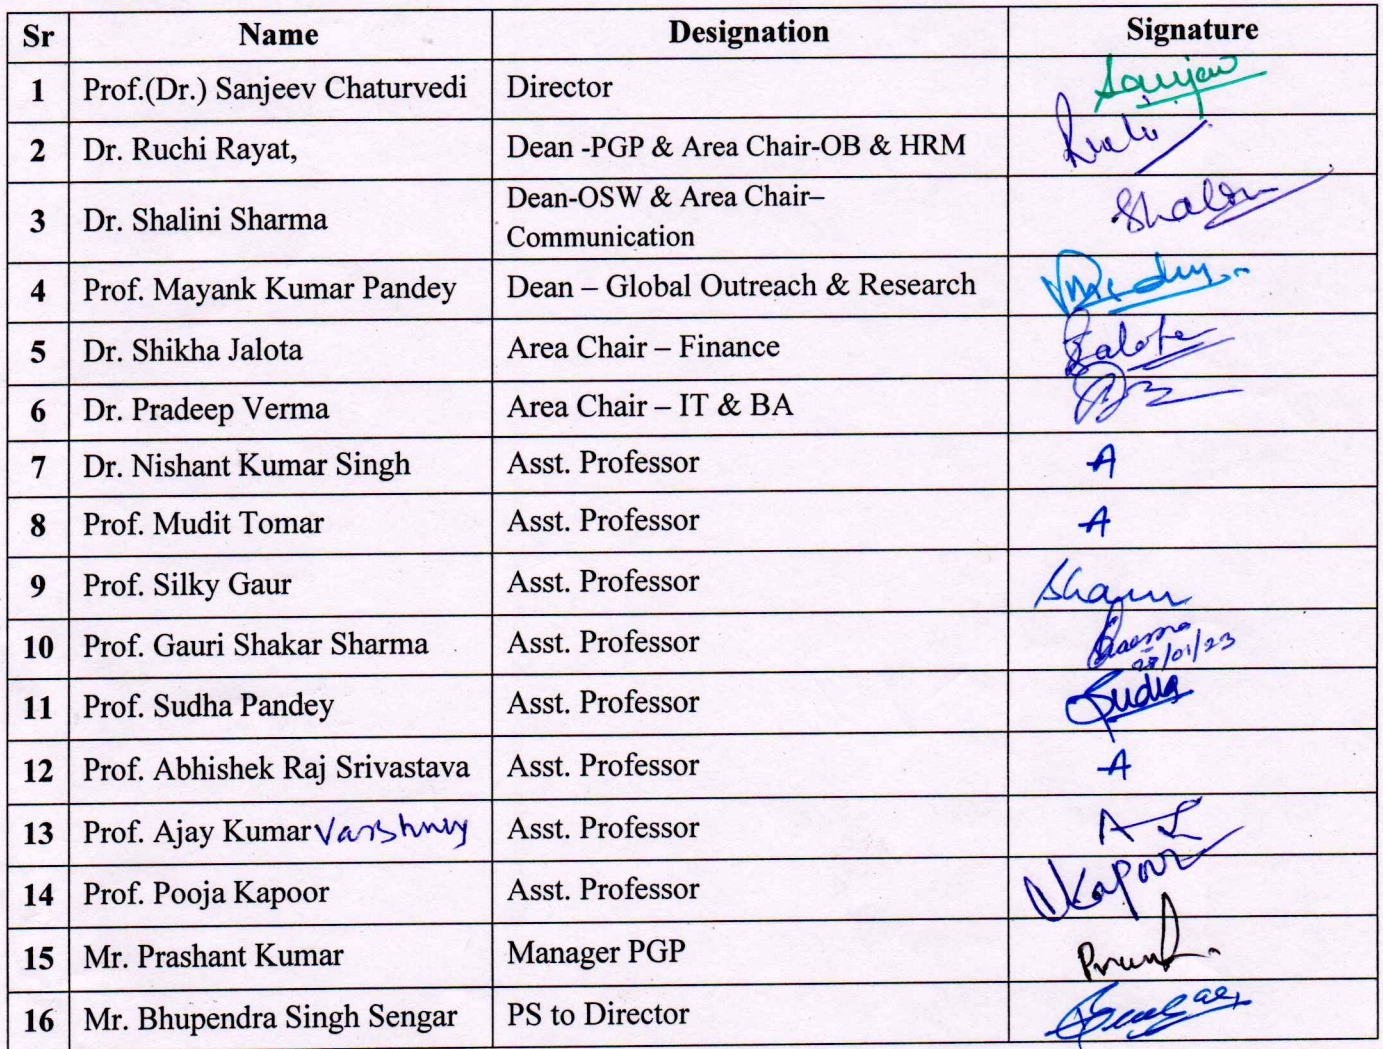 Sr Name Designation Signature
1 Prof.(Dr.) Sanjeev Chaturvedi Director Sanjeev
2 Dr. Ruchi Rayat, Dean -PGP & Area Chair-OB & HRM
3 Dr. Shalini Sharma Dean-OSW & Area Chair–
Communication
4 Prof. Mayank Kumar Pandey Dean – Global Outreach & Research
5 Dr. Shikha Jalota Area Chair – Finance
6 Dr. Pradeep Verma Area Chair – IT & BA
7 Dr. Nishant Kumar Singh Asst. Professor A
8 Prof. Mudit Tomar Asst. Professor A
9 Prof. Silky Gaur Asst. Professor
10 Prof. Gauri Shakar Sharma Asst. Professor
28/01/23
11 Prof. Sudha Pandey Asst. Professor Sudha
12 Prof. Abhishek Raj Srivastava Asst. Professor A
13 Prof. Ajay Kumar Varshney Asst. Professor
14 Prof. Pooja Kapoor Asst. Professor Kapoor
15 Mr. Prashant Kumar Manager PGP
16 Mr. Bhupendra Singh Sengar PS to Director